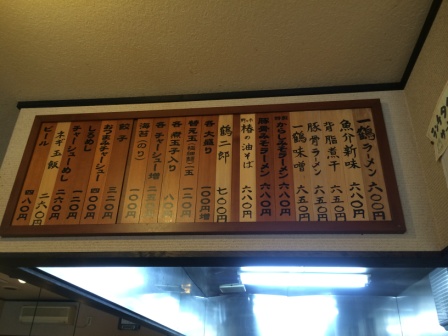 一鶴ラーメン 六〇〇円
魚介新味 六五〇円
背脂煮干 六五〇円
豚骨ラーメン 六五〇円
一鶴味噌 六五〇円
からしみそラーメン 六八〇円
豚骨みそラーメン 六八〇円
椿の油そば 六八〇円
鶴二郎 七〇〇円
各 大盛り 一〇〇円増
替え玉 一玉 一二〇円
各 煮玉子入り 八〇円
各 チャーシュー増 二五〇円
海苔(のり) 一〇〇円
餃子 三二〇円
おつまみチャーシュー 四八〇円
しろめし 一二〇円
チャーシューめし 二八〇円
ネギ玉飯 二六〇円
ビール 四八〇円